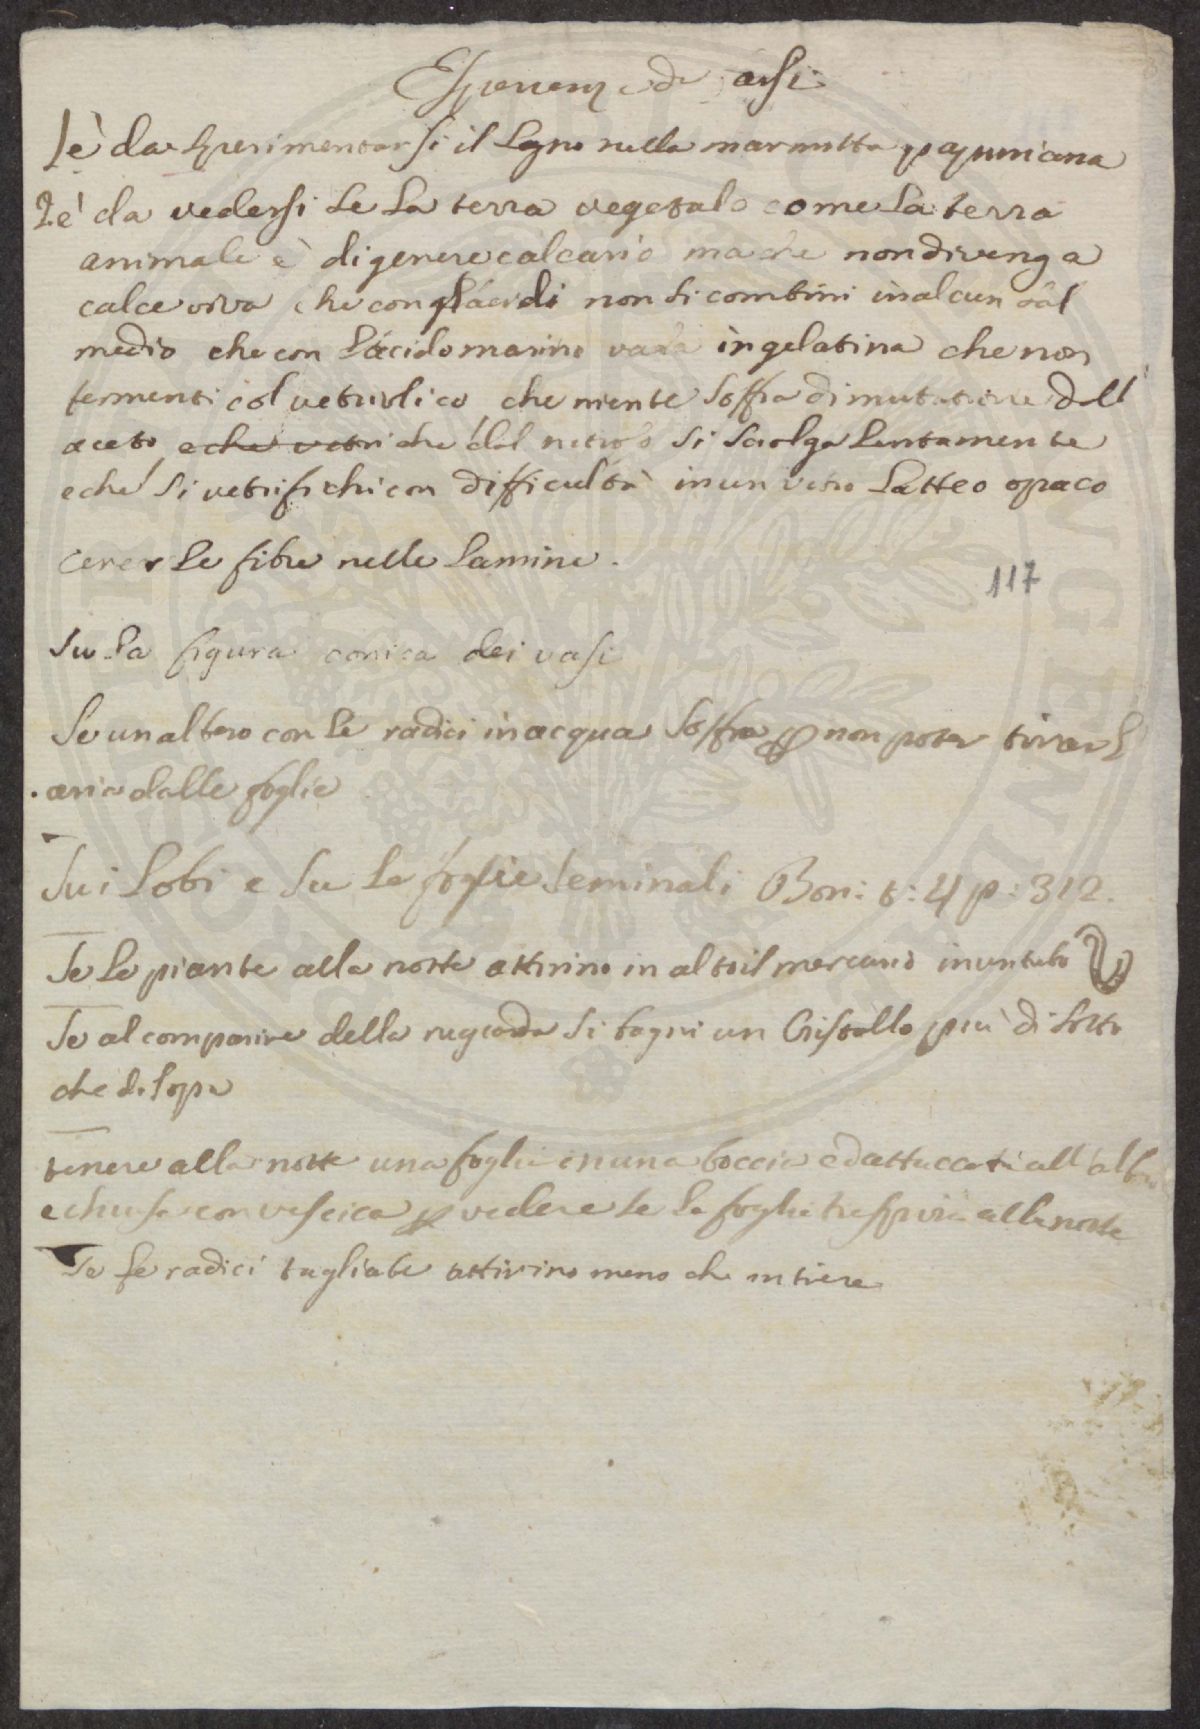 Esperienze da farsi
1 è da sperimentarsi il legno nella marmitta papiniana
2 è da vedersi se la terra vegetale come la terra
animale è di genere calcario ma che non divenga
calce viva che con gl'ácidi non si combini in alcun sal
medio che con l'ácido marino vada in gelatina che non
fermenti col vetriolico che niente soffra di mutatione dall'
aceto e che vetri che dal nitroso si sciolga lentamente
e che si vetrifichi con difficultà in un vitro latteo opaco
cerer le fibre nelle lamine.
117
su la figura conica dei vasi
Se un albero con le radici in acqua soffra p non poter tirar l
aria dalle foglie
Sui lobi e su le foglie seminali Bon: t: 4 p: 312.
Se le piante alla notte attirino in alto il mercurio in un tubo
Se al comparire della rugiada si bagni un Cristallo più di sotto
che di sopra
tenere alla notte una foglia in una boccia ed attaccata all'albero
e chiusa con vescica p vedere se la foglia traspira alla notte
Se le radici tagliate attirino meno che intiere